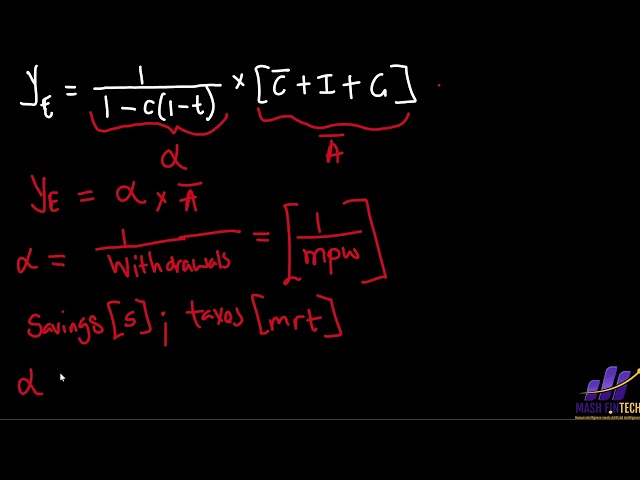 y_E = 1/(1-c(1-t)) × [C̅ + I + G]
α A̅
y_E = α × A̅
α = 1/Withdrawals = [1/mpw]
Savings [s] ; taxes [mrt]
α
MASH FINTECH